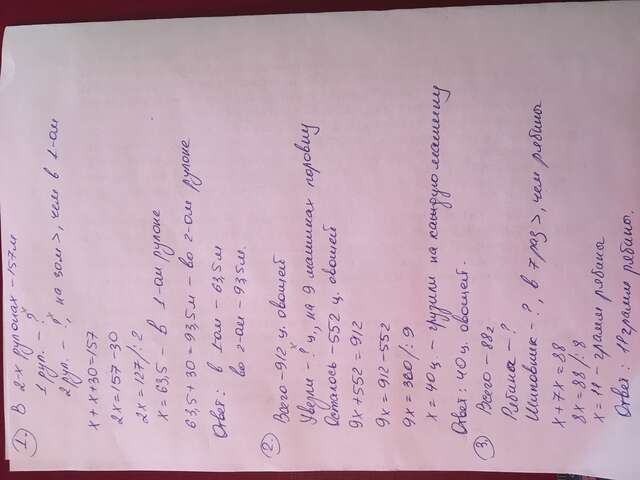 1. В 2-х рулонах - 157 м
1 рул. - ? x
2 рул. - ? x, на 30м >, чем в 1-ом
x + x + 30 = 157
2x = 157 - 30
2x = 127 /: 2
x = 63,5 - в 1-ом рулоне
63,5 + 30 = 93,5 м - во 2-ом рулоне
Ответ: в 1-ом - 63,5 м
во 2-ом - 93,5 м.
2. Всего - 912 ц. овощей
Увезли - ? x ц, на 9 машинах поровну
Осталось - 552 ц. овощей
9x + 552 = 912
9x = 912 - 552
9x = 360 /: 9
x = 40 ц. - грузили на каждую машину
Ответ: 40 ц. овощей.
3. Всего - 88 г
Рябина - ?
Шиповник - ?, в 7 раз >, чем рябина
x + 7x = 88
8x = 88 /: 8
x = 11 - грамм рябина
Ответ: 11 грамм рябина.